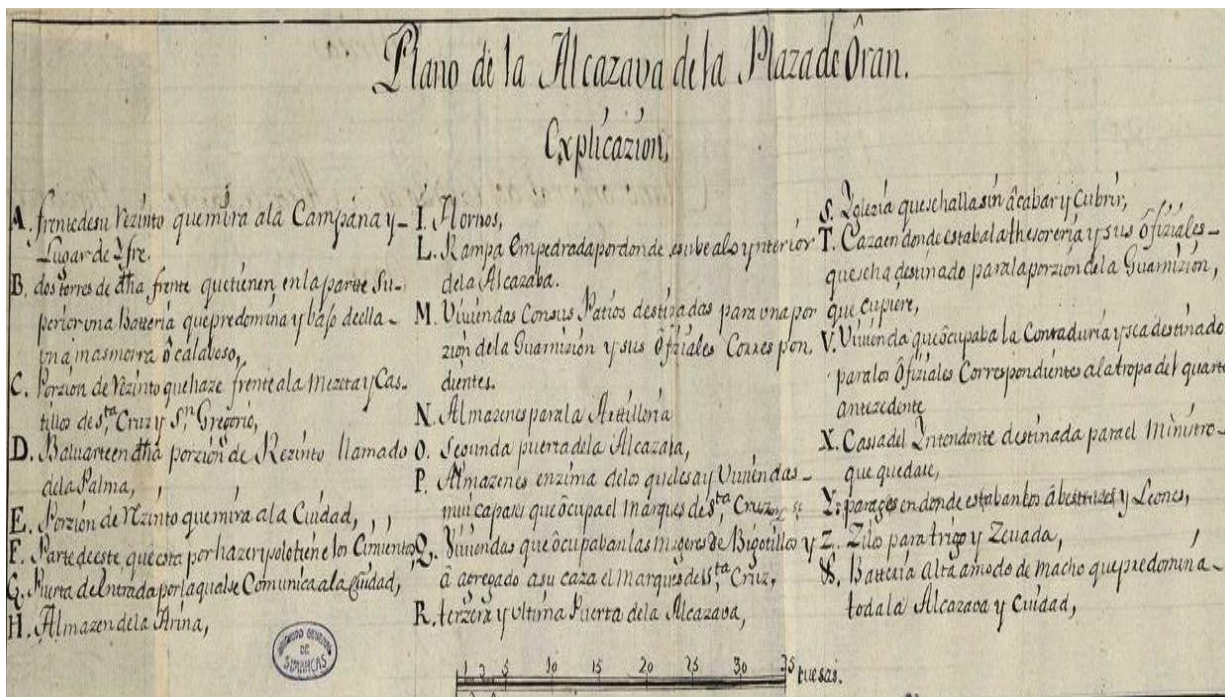 Plano de la Alcazava de la Plaza de Ôran.
Explicazion,
A. frente de su Rezinto que mira a la Campana y-
Lugar de Yfre.
B. dos torres de dha frente que tienen en la partte Su-
perior vna Batteria que predomina y bajo de ella-
vna masmorra ô calaboso,
C. Porzion de Rezinto que haze frente a la Mezeta y Cas-
tillos de Sta. Cruz y Sn. Gregorio,
D. Baluarte en dha porzion de Rezinto llamado
de la Palma,
E. Porzion de Rezinto que mira a la Ciudad,
F. Parte de este que esta por hazer y solo tiene los Cimientos,
G. Puerta de Entrada por la qual se Comunica a la Ciudad,
H. Almazen de la Arina,
I. Hornos,
L. Rampa Empedrada por donde se sube al o ynterior
de la Alcazaba.
M. Viuiendas Con sus Patios destinadas para vna por
zion de la Guarnizion y sus Ôfiziales Corres pon.
dientes.
N. Almazenes para la Artilleria
O. Segunda puerta de la Alcazaba,
P. Almazenes enzima de los queles ay Viuiendas-
mui capases que ôcupa el Marques de Sta. Cruz
Q. Viuiendas que ôcupaban las mugeres de Bigotillos y
â agregado a su caza el Marques de Sta. Cruz,
R. terzera y Vltima Puerta de la Alcazava,
S. Yglezia que se halla sin âcabar y Cubrir,
T. Caza en donde estaba la thesoreria y sus ôfiziales-
que se ha destinado para la porzion de la Guarnizion,
que cupiere,
V. Viuienda que ôcupaba la Contaduria y sea destinado
para los Ôfiziales Correspondientes a la tropa del quartel
antezedente
X. Cassa del Yntendente destinada para el Ministro-
que quedase,
Y: parages en donde estaban los âbestruzes y Leones,
Z. Zilos para trigo y Zeuada,
&. Batteria alta a modo de macho que predomina-
toda la Alcazava y Ciudad,
ARCHIVO GENERAL
DE
SIMANCAS
1 3 5 10 15 20 25 30 35 tuesas.